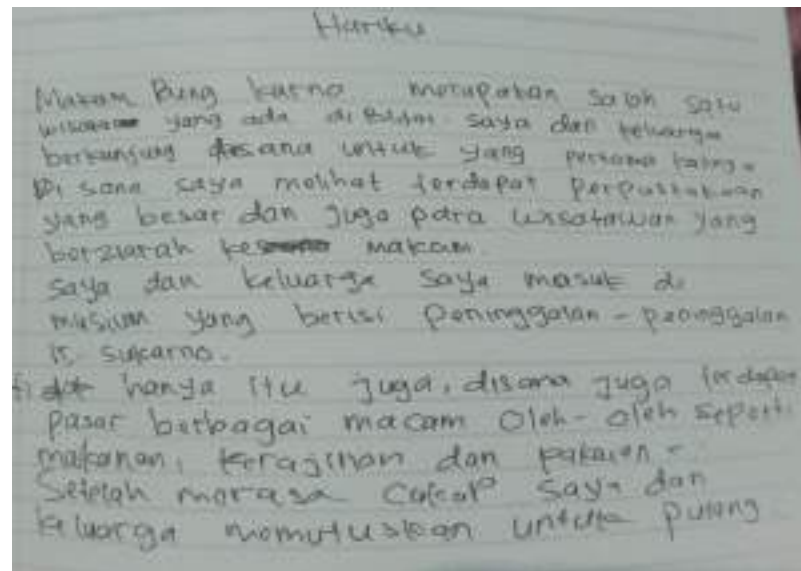 Hariku
Makam Bung karno merupakan salah satu
wisata yang ada di Blitar saya dan keluarga
berkunjung disana untuk yang pertama kalinya
Di sana saya melihat terdapat perpustakaan
yang besar dan juga para wisatawan yang
berziarah ke makam
saya dan keluarga saya masuk di
musium yang berisi peninggalan - peninggalan
ir. sukarno.
tidak hanya itu juga, disana juga terdapat
pasar berbagai macam oleh - oleh seperti
makanan, kerajinan dan pakaian -
Setelah merasa cukup saya dan
keluarga memutuskan untuk pulang